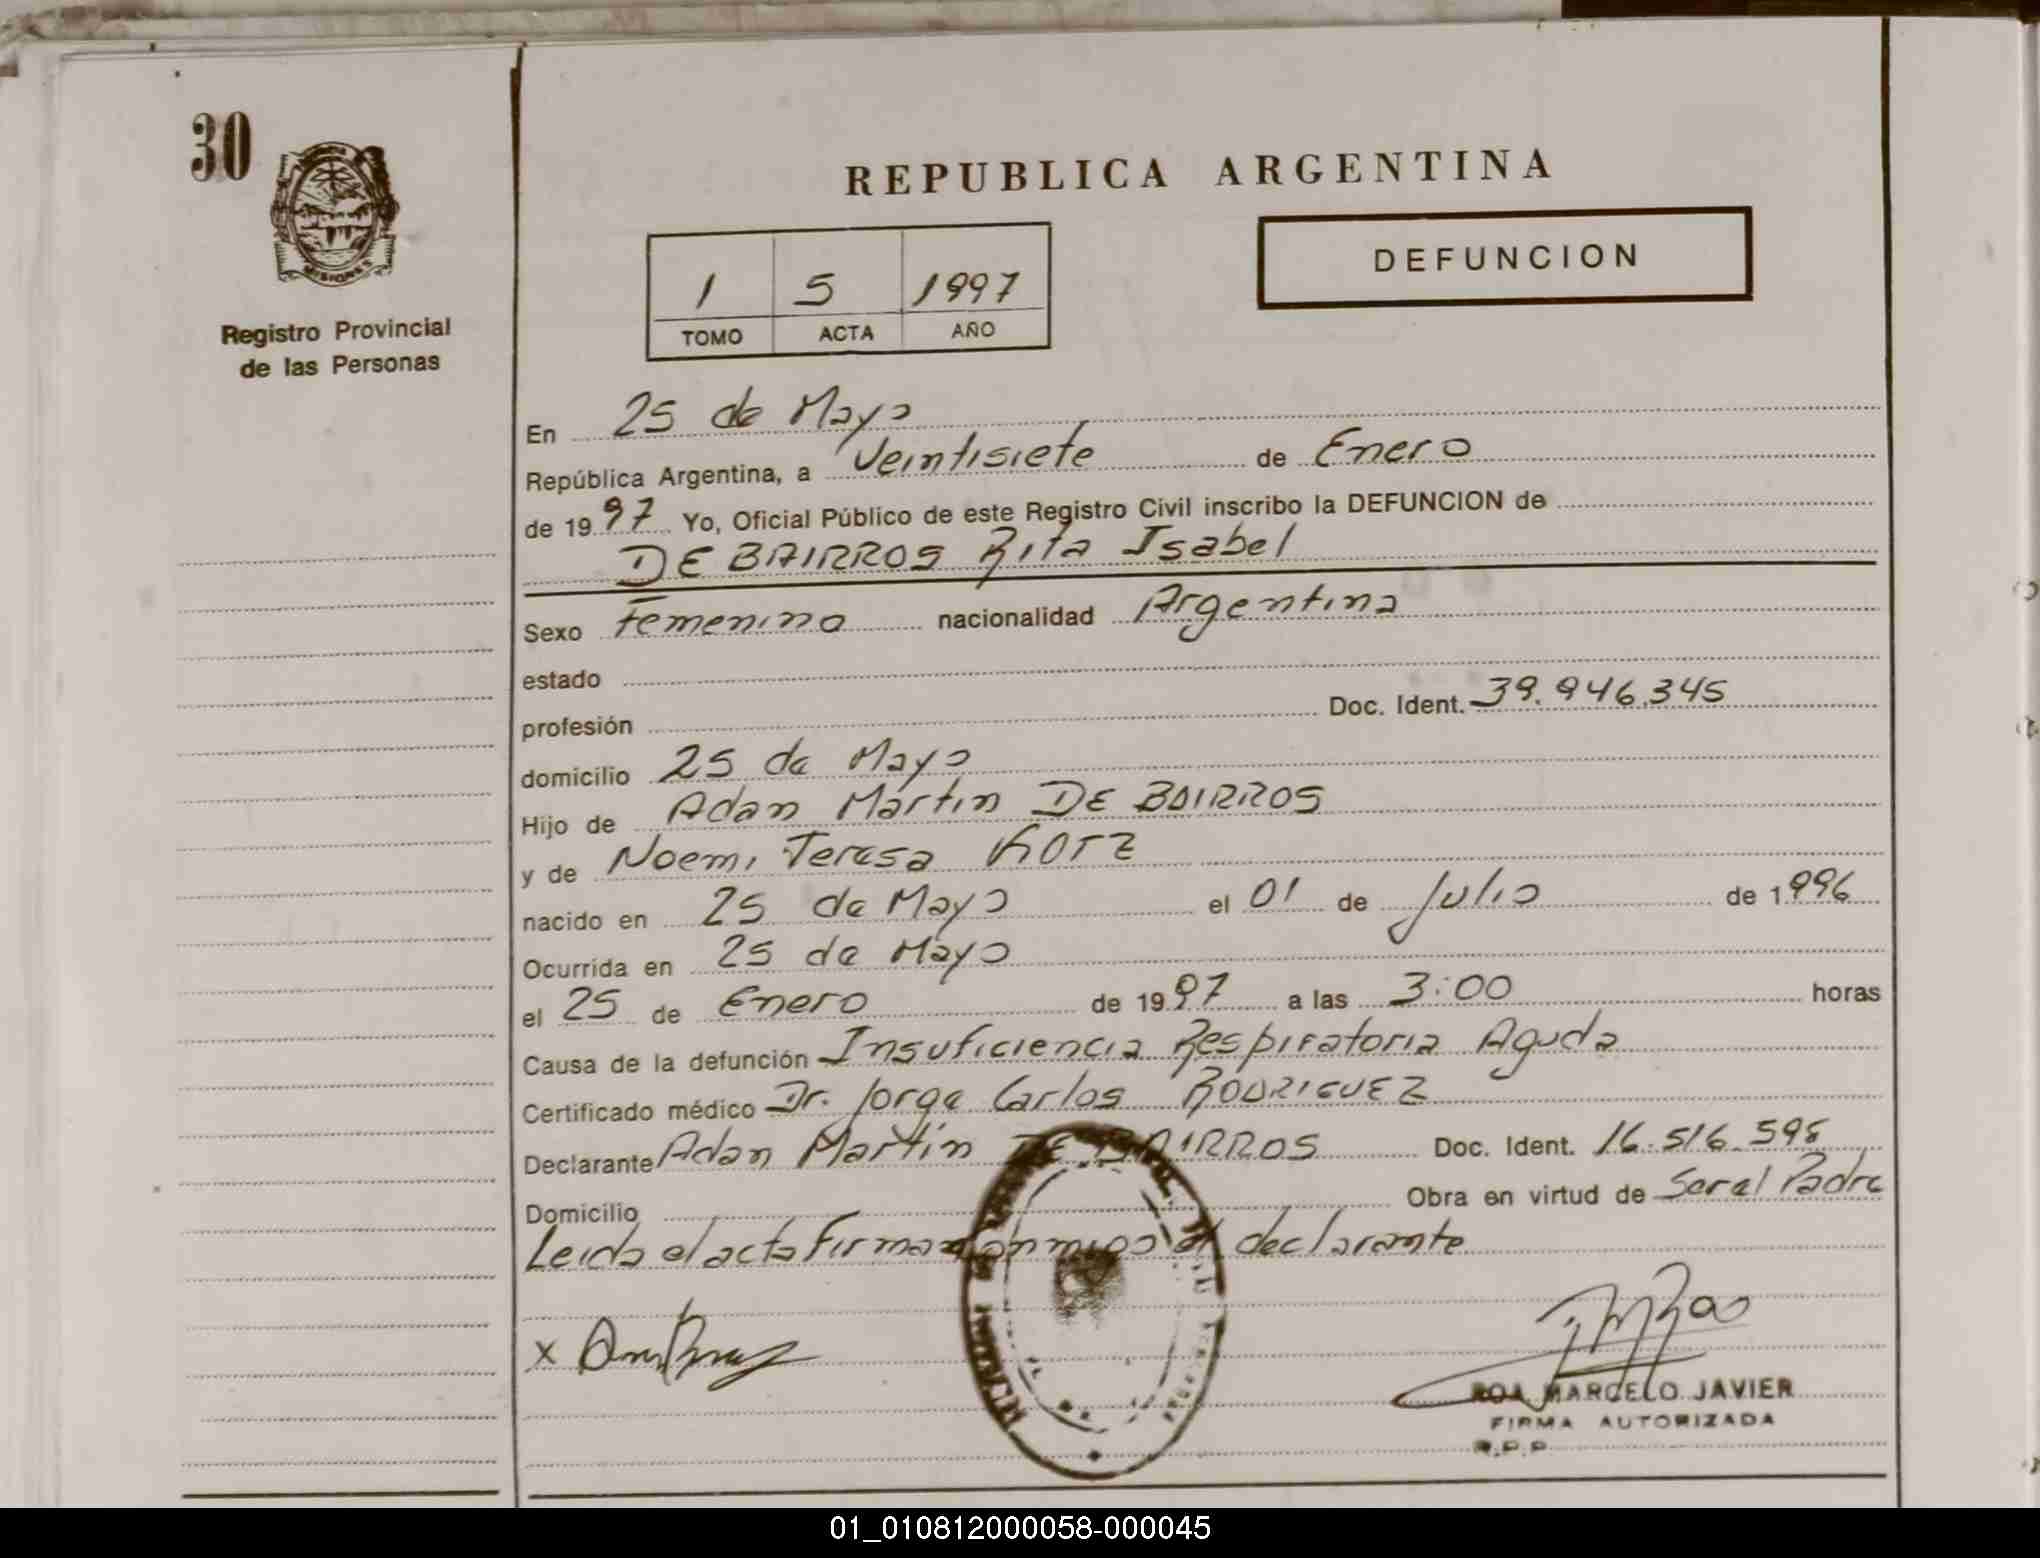 30
MISIONES
Registro Provincial
de las Personas
REPUBLICA ARGENTINA
DEFUNCION
1 5 1997
TOMO ACTA AÑO
En 25 de Mayo
República Argentina, a Veintisiete de Enero
de 1997 Yo, Oficial Público de este Registro Civil inscribo la DEFUNCION de
DE BAIRROS Rita Isabel
Sexo Femenino nacionalidad Argentina
estado
profesión Doc. Ident. 39.946.345
domicilio 25 de Mayo
Hijo de Adan Martin DE BAIRROS
y de Noemi Teresa
nacido en 25 de Mayo el 01 de Julio de 1996
Ocurrida en 25 de Mayo
el 25 de Enero de 1997 a las 3:00 horas
Causa de la defunción Insuficiencia Respiratoria Aguda
Certificado médico Dr. Jorge Carlos RODRIGUEZ
Declarante Adan Martin DE BAIRROS Doc. Ident. 16.516.598
Domicilio Obra en virtud de Ser el Padre
Leida el acta Firman conmigo el declarante
X
ROA MARCELO JAVIER
FIRMA AUTORIZADA
R.P.P.
01_010812000058-000045